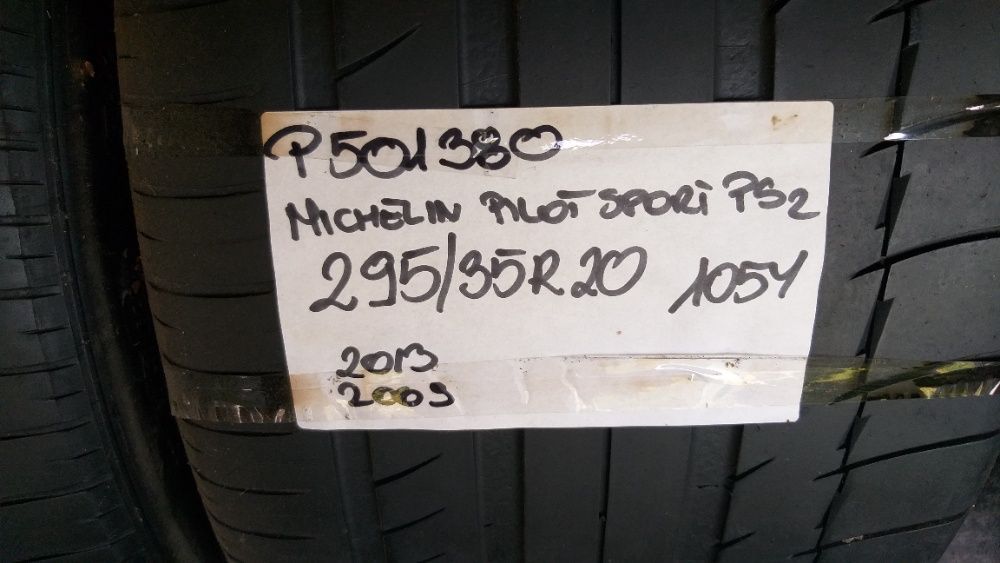 P501380
MICHELIN PILOT SPORT PS2
295/35R20 105Y
2013
2009